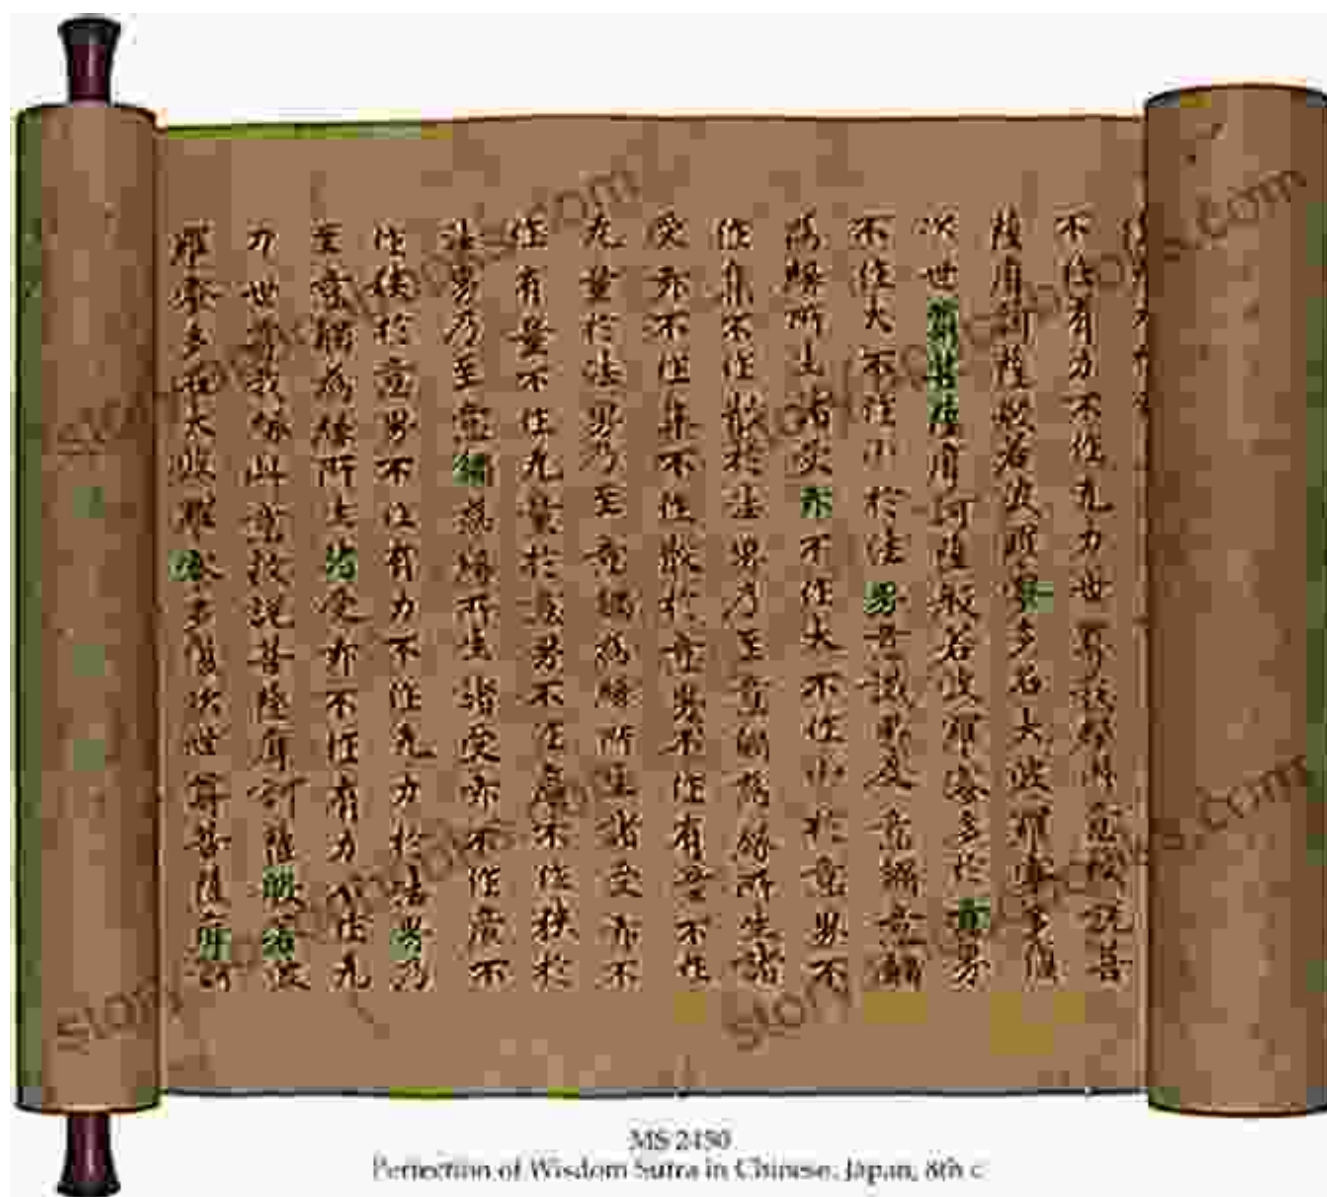 不作有力不作无力世尊我緣此意故說菩
薩摩訶薩般若波羅蜜多名大波羅蜜多復
次世尊菩薩摩訶薩般若波羅蜜多於意界
不作大不作小於法界意識界及意觸意觸
為緣所生諸受亦不作大不作小於意界不
作集不作散於法界乃至意觸為緣所生諸
受亦不作集不作散於意界不作有量不作
无量於法界乃至意觸為緣所生諸受亦不
作有量不作无量於意界不作廣不作狹於
法界乃至意觸為緣所生諸受亦不作廣不
作狹於意界不作有力不作无力於法界乃
至意觸為緣所生諸受亦不作有力不作无
力世尊我緣此意故說菩薩摩訶薩般若波
羅蜜多名大波羅蜜多復次世尊菩薩摩訶
MS 2450
Perfection of Wisdom Sutra in Chinese, Japan, 8th c